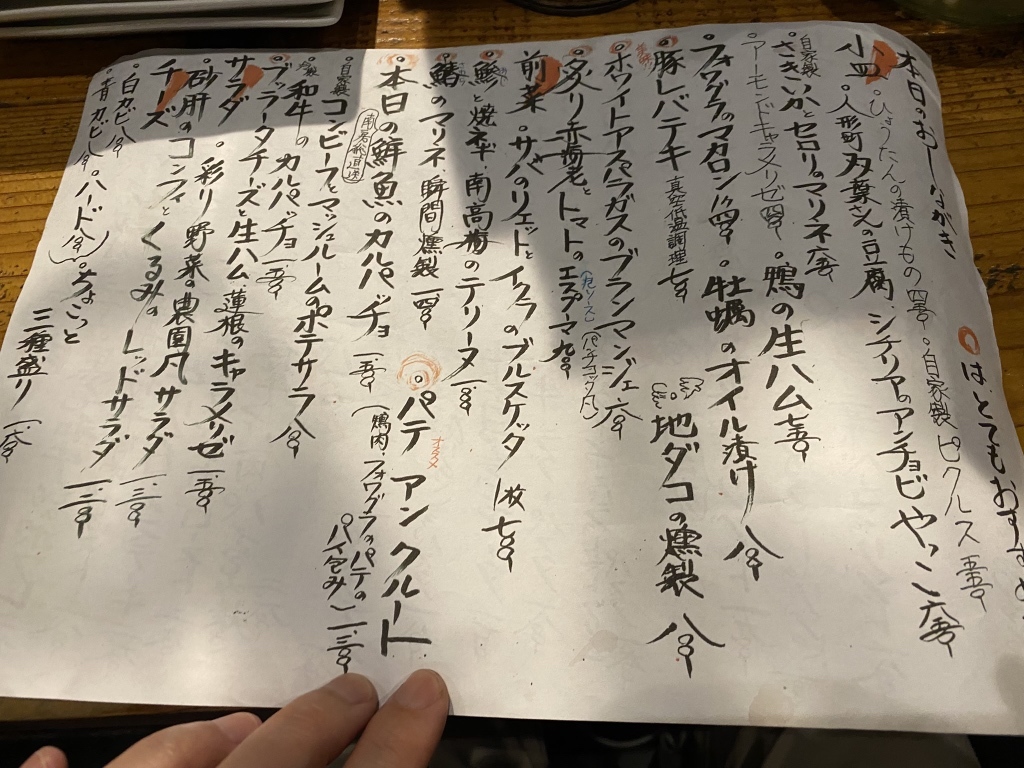 はとてもおすすめ
本日のおしながき
・ひょうたんの漬けもの 四吾 ・自家製ピクルス 五吾
小皿 ・人形町 双葉さんの豆腐 シチリアのアンチョビやっこ 六吾
自家製 さきいかとセロリのマリネ 六吾 ・鴨の生ハム 七吾
アーモンドキャラメリゼ
・フォワグラのマカロン 1ケ ・牡蠣のオイル漬け 八
豚レバテキ 真空低温調理 七 地ダコの燻製 八
ホワイトアスパラガスのブランマンジェ 六
炙り赤海老とトマトのエスプーマ 九
前菜 ・サバのリエットとイクラのブルスケッタ 1枚 七
と焼ネギ 南高梅のテリーヌ 一
のマリネ 瞬間燻製 一四
本日の鮮魚のカルパッチョ 一吾 パテ アンクルート オススメ
(鴨肉、フォワグラのパテのパイ包み) 一、三
自家製 コンビーフとマッシュルームのポテサラ 八
和牛のカルパッチョ 一吾
・ブッラータチーズと生ハム 蓮根のキャラメリゼ 一吾
サラダ ・彩り野菜の農園風サラダ 一、三
・砂肝のコンフィとくるみのレッドサラダ 一三
チーズ
・白カビ 八 ・ちょこっと三種盛り 一六
・青カビ ・ハード 八